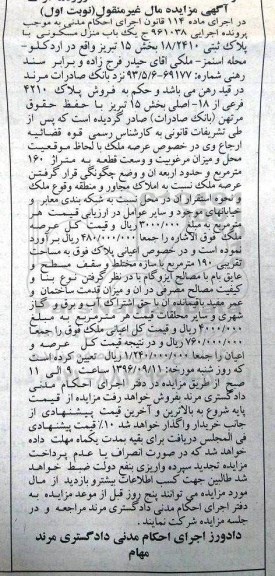 آگهی مزایده مال غیرمنقول(نوبت اول)
در اجرای ماده ۱۱۴ قانون اجرای احکام مدنی به موجب
پرونده اجرایی ۹۶۱۰۳۸ ج یک باب منزل مسکونی با
پلاک ثبتی ۱۸/۲۴۱۰ بخش ۱۵ تبریز واقع در اردکلو-
محله استمز- ملکی اقای حیدر فرج زاده و برابر سند
رهنی شماره: ۶۹۱۷۷-۹۳/۵/۶ نزد بانک صادرات مرند
در قید رهن می باشد و حکم به فروش پلاک ۴۲۱۰
فرعی از ۱۸- اصلی بخش ۱۵ تبریز با حفظ حقوق
مرتهن (بانک صادرات) صادر گردیده است که پس از
طی تشریفات قانونی به کارشناس رسمی قوه قضائیه
ارجاع وی در خصوص عرصه ملک با لحاظ موقعیت
محل و میزان مرغوبیت و وسعت قطعه به متراژ ۱۶۰
مترمربع و حدود اربعه آن و وضع چگونگی قرار گرفتن
عرصه ملک نسبت به املاک مجاور و منطقه وقوع ملک
و نحوه استقرار آن در محل نسبت به شبکه بندی معابر و
خیابانهای موجود و سایر عوامل در ارزیابی قیمت هر
مترمربع به مبلغ ۳۰۰۰/۰۰۰ ریال و قیمت کل عرصه
ملک فوق الاشاره را جمعا ۴۸۰/۰۰۰/۰۰۰ ریال برآورد
نموده است و در خصوص اعیانی پلاک فوق به مساحت
تقریبی ۱۹۰ مترمربع با سازه مختلط و سقف مسطح و
عایق بام با مصالح ایزوگام با در نظر گرفتن نوع بنا و
کیفیت مصالح مصرفی در آن و میزان قدمت ساختمان و
عمر مفید باقیمانده آن با حق اشتراک آب و برق و گاز
شهری و سایر ملحقات قیمت هر مترمربع به مبلغ
۴۰۰۰/۰۰۰ ریال و قیمت کل اعیانی ملک فوق را جمعا
۷۶۰/۰۰۰/۰۰۰ ریال و در نتیجه قیمت کل عرصه و
اعیان را جمعا ۱/۲۴۰/۰۰۰/۰۰۰ ریال تعیین کرده است
که روز شنبه مورخه: ۱۳۹۶/۰۹/۱۱ ساعت ۹ الی ۱۱
صبح از طریق مزایده در دفتر اجرای احکام مدنی
دادگستری مرند بفروش خواهد رفت مزایده از قیمت
پایه شروع به بالاترین و آخرین قیمت پیشنهادی از
جانب خریدار واگذار خواهد شد ۱۰٪ قیمت پیشنهادی
فی المجلس دریافت برای بقیه بمدت یکماه مهلت داده
خواهد شد که در صورت انصراف یا عدم پرداخت
مزایده تجدید سپرده واریزی بنفع دولت ضبط خواهد
شد طالبین جهت کسب اطلاعات بیشتر و بازدید از مال
مورد مزایده می توانند پنج روز قبل از موعد مزایده به
دفتر اجرای احکام مدنی دادگستری مرند مراجعه و در
جلسه مزایده شرکت نمایند.
دادورز اجرای احکام مدنی دادگستری مرند
مهام